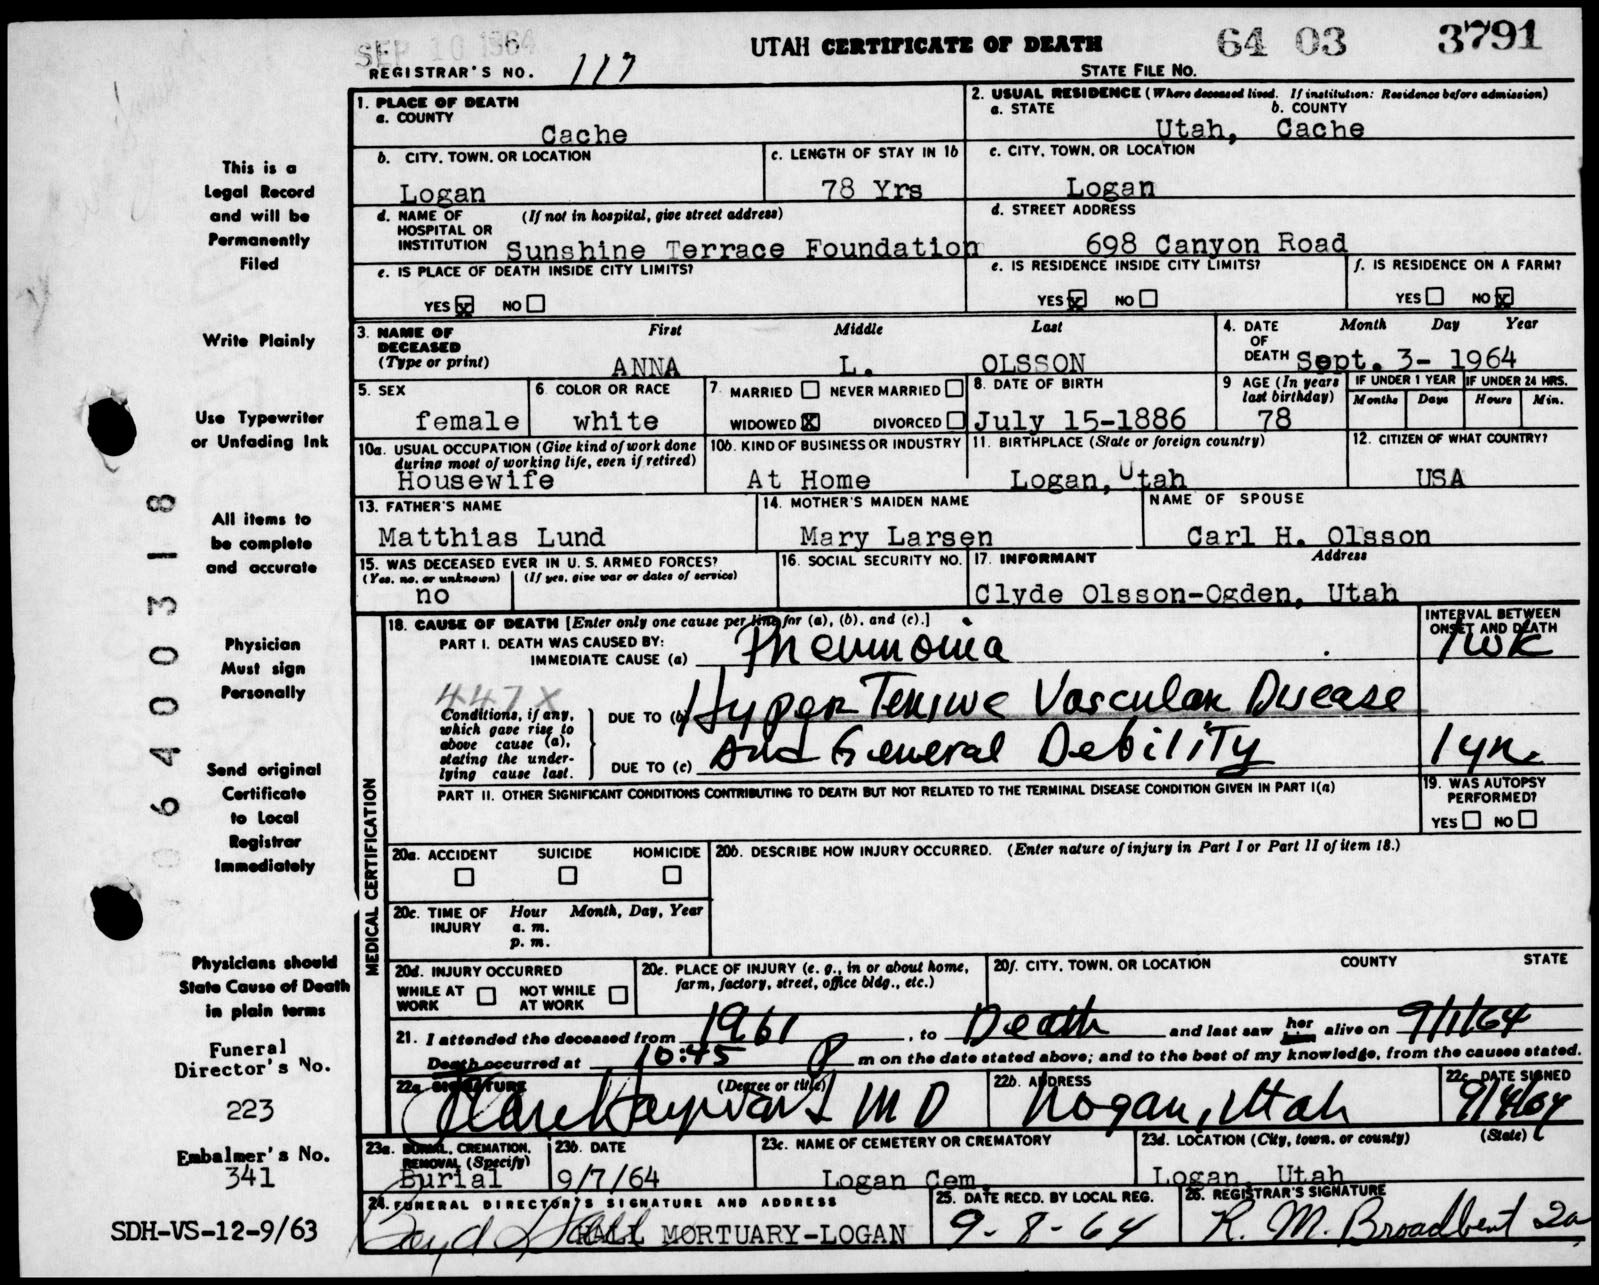 SEP 10 1964
UTAH CERTIFICATE OF DEATH
64 03 3791
REGISTRAR'S NO. 117
STATE FILE NO.
1. PLACE OF DEATH
a. COUNTY
Cache
2. USUAL RESIDENCE (Where deceased lived. If institution: Residence before admission)
a. STATE b. COUNTY
Utah, Cache
b. CITY, TOWN, OR LOCATION
Logan
c. LENGTH OF STAY IN 1b
78 Yrs
c. CITY, TOWN, OR LOCATION
Logan
d. NAME OF HOSPITAL OR INSTITUTION (If not in hospital, give street address)
Sunshine Terrace Foundation
d. STREET ADDRESS
698 Canyon Road
e. IS PLACE OF DEATH INSIDE CITY LIMITS?
YES x NO
e. IS RESIDENCE INSIDE CITY LIMITS?
YES x NO
f. IS RESIDENCE ON A FARM?
YES NO x
3. NAME OF DECEASED (Type or print)
First Middle Last
ANNA L. OLSSON
4. DATE OF DEATH
Month Day Year
Sept. 3- 1964
5. SEX
female
6. COLOR OR RACE
white
7. MARRIED NEVER MARRIED
WIDOWED X DIVORCED
8. DATE OF BIRTH
July 15-1886
9 AGE (In years last birthday)
78
IF UNDER 1 YEAR
Months Days
IF UNDER 24 HRS.
Hours Min.
10a. USUAL OCCUPATION (Give kind of work done during most of working life, even if retired)
Housewife
10b. KIND OF BUSINESS OR INDUSTRY
At Home
11. BIRTHPLACE (State or foreign country)
Logan, Utah
12. CITIZEN OF WHAT COUNTRY?
USA
13. FATHER'S NAME
Matthias Lund
14. MOTHER'S MAIDEN NAME
Mary Larsen
NAME OF SPOUSE
Carl H. Olsson
15. WAS DECEASED EVER IN U. S. ARMED FORCES?
(Yes, no, or unknown) (If yes, give war or dates of service)
no
16. SOCIAL SECURITY NO.
17. INFORMANT Address
Clyde Olsson-Ogden, Utah
MEDICAL CERTIFICATION
18. CAUSE OF DEATH [Enter only one cause per line for (a), (b), and (c).]
INTERVAL BETWEEN ONSET AND DEATH
PART I. DEATH WAS CAUSED BY:
IMMEDIATE CAUSE (a) Pneumonia
1 wk
447X
Conditions, if any, which gave rise to above cause (a), stating the underlying cause last.
DUE TO (b) Hypertensive Vascular Disease
DUE TO (c) And General Debility
1 yr.
PART II. OTHER SIGNIFICANT CONDITIONS CONTRIBUTING TO DEATH BUT NOT RELATED TO THE TERMINAL DISEASE CONDITION GIVEN IN PART I(a)
19. WAS AUTOPSY PERFORMED?
YES NO
20a. ACCIDENT SUICIDE HOMICIDE
20b. DESCRIBE HOW INJURY OCCURRED. (Enter nature of injury in Part I or Part II of item 18.)
20c. TIME OF INJURY Hour Month, Day, Year
a. m.
p. m.
20d. INJURY OCCURRED
WHILE AT WORK NOT WHILE AT WORK
20e. PLACE OF INJURY (e. g., in or about home, farm, factory, street, office bldg., etc.)
20f. CITY, TOWN, OR LOCATION COUNTY STATE
21. I attended the deceased from 1961, to Death and last saw her him alive on 9/1/64
Death occurred at 10:45 P m on the date stated above; and to the best of my knowledge, from the causes stated.
22a. SIGNATURE (Degree or title)
Clare Hayward MD
22b. ADDRESS
Logan, Utah
22c. DATE SIGNED
9/4/64
23a. BURIAL, CREMATION, REMOVAL (Specify)
Burial
23b. DATE
9/7/64
23c. NAME OF CEMETERY OR CREMATORY
Logan Cem.
23d. LOCATION (City, town, or county) (State)
Logan, Utah
24. FUNERAL DIRECTOR'S SIGNATURE AND ADDRESS
HALL MORTUARY-LOGAN
25. DATE RECD. BY LOCAL REG.
9-8-64
26. REGISTRAR'S SIGNATURE
R. M. Broadbent
This is a
Legal Record
and will be
Permanently
Filed
Write Plainly
Use Typewriter
or Unfading Ink
All items to
be complete
and accurate
Physician
Must sign
Personally
Send original
Certificate
to Local
Registrar
Immediately
Physicians should
State Cause of Death
in plain terms
Funeral
Director's No.
223
Embalmer's No.
341
SDH-VS-12-9/63